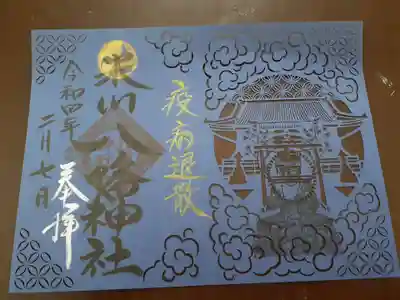 疫病退散
氷川八幡神社
令和四年
二月七日
奉拝